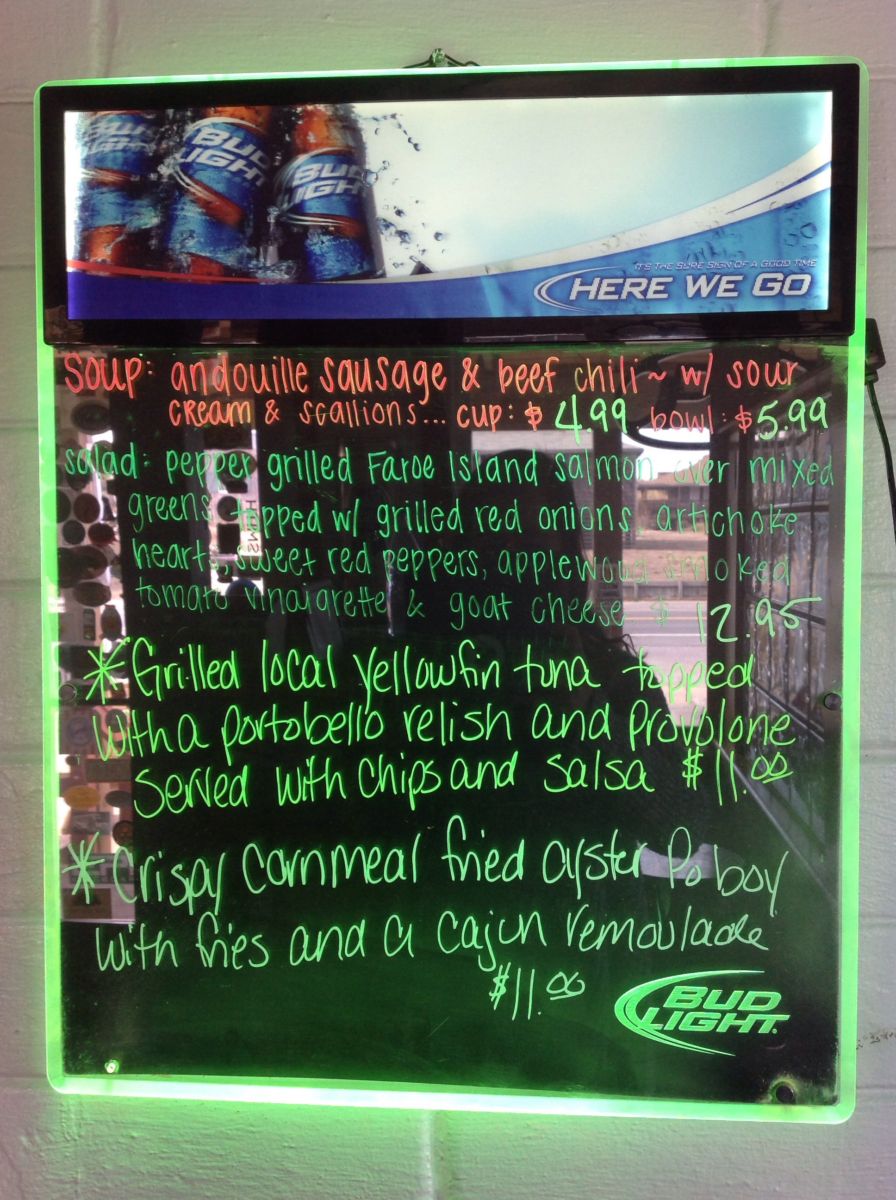 BUD LIGHT
BUD LIGHT
BUD LIGHT
IT'S THE SURE SIGN OF A GOOD TIME
HERE WE GO
Soup: andouille sausage & beef chili ~ w/ sour
cream & scallions... cup: $4.99 bowl: $5.99
salad: pepper grilled Faroe Island salmon over mixed
greens topped w/ grilled red onions, artichoke
hearts, sweet red peppers, applewood smoked
tomato vinaigrette & goat cheese $12.95
*Grilled local yellowfin tuna topped
with a portobello relish and provolone
served with chips and salsa $11.00
*Crispy Cornmeal fried oyster Po boy
with fries and a cajun remoulade
$11.00
BUD
LIGHT